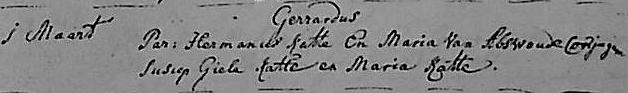 Gerrardus
1 Maart Par: Hermanus Katte En Maria Van Abswoude
Suscep Giele Katte en Maria Katte.